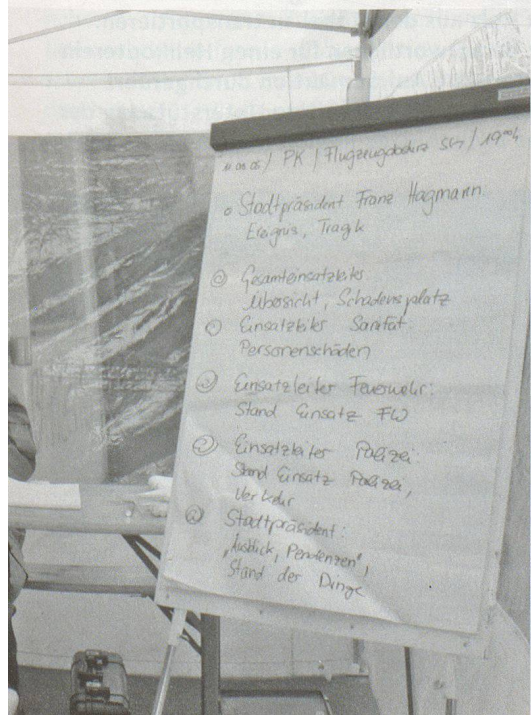 PK / Flugzeugabsturz SG / 19⁰⁰h
o Stadtpräsident Franz Hagmann
Ereignis, Tragik
Gesamteinsatzleiter
Übersicht, Schadensplatz
Einsatzleiter Sanität:
Personenschäden
Einsatzleiter Feuerwehr:
Stand Einsatz FW
Einsatzleiter Polizei:
Stand Einsatz Polizei,
Verkehr
Stadtpräsident:
"Ausblick, Pendenzen",
Stand der Dinge